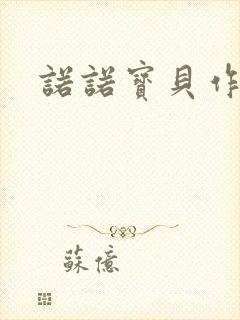 諾諾寶貝作
蘇億